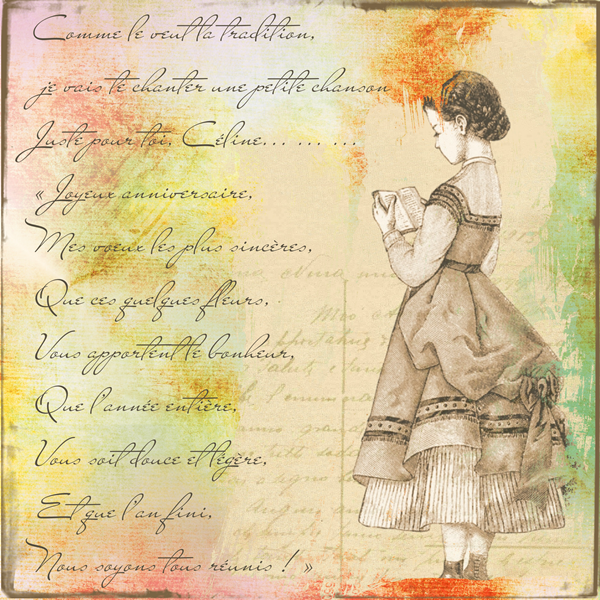 Comme le veut la tradition,
je vais te chanter une petite chanson
Juste pour toi, Céline... ... ...
« Joyeux anniversaire,
Mes voeux les plus sincères,
Que ces quelques fleurs,
Vous apportent le bonheur,
Que l'année entière,
Vous soit douce et légère,
Et que l'an fini,
Nous soyons tous réunis ! »